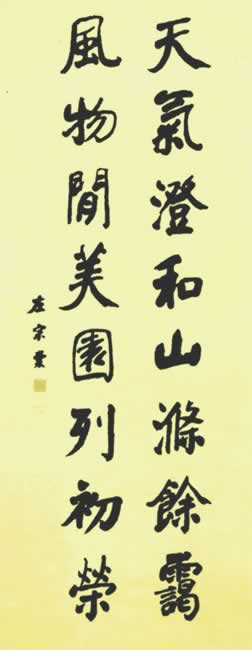 天氣澄和山滌餘靄
風物閒美園列初榮
左宗